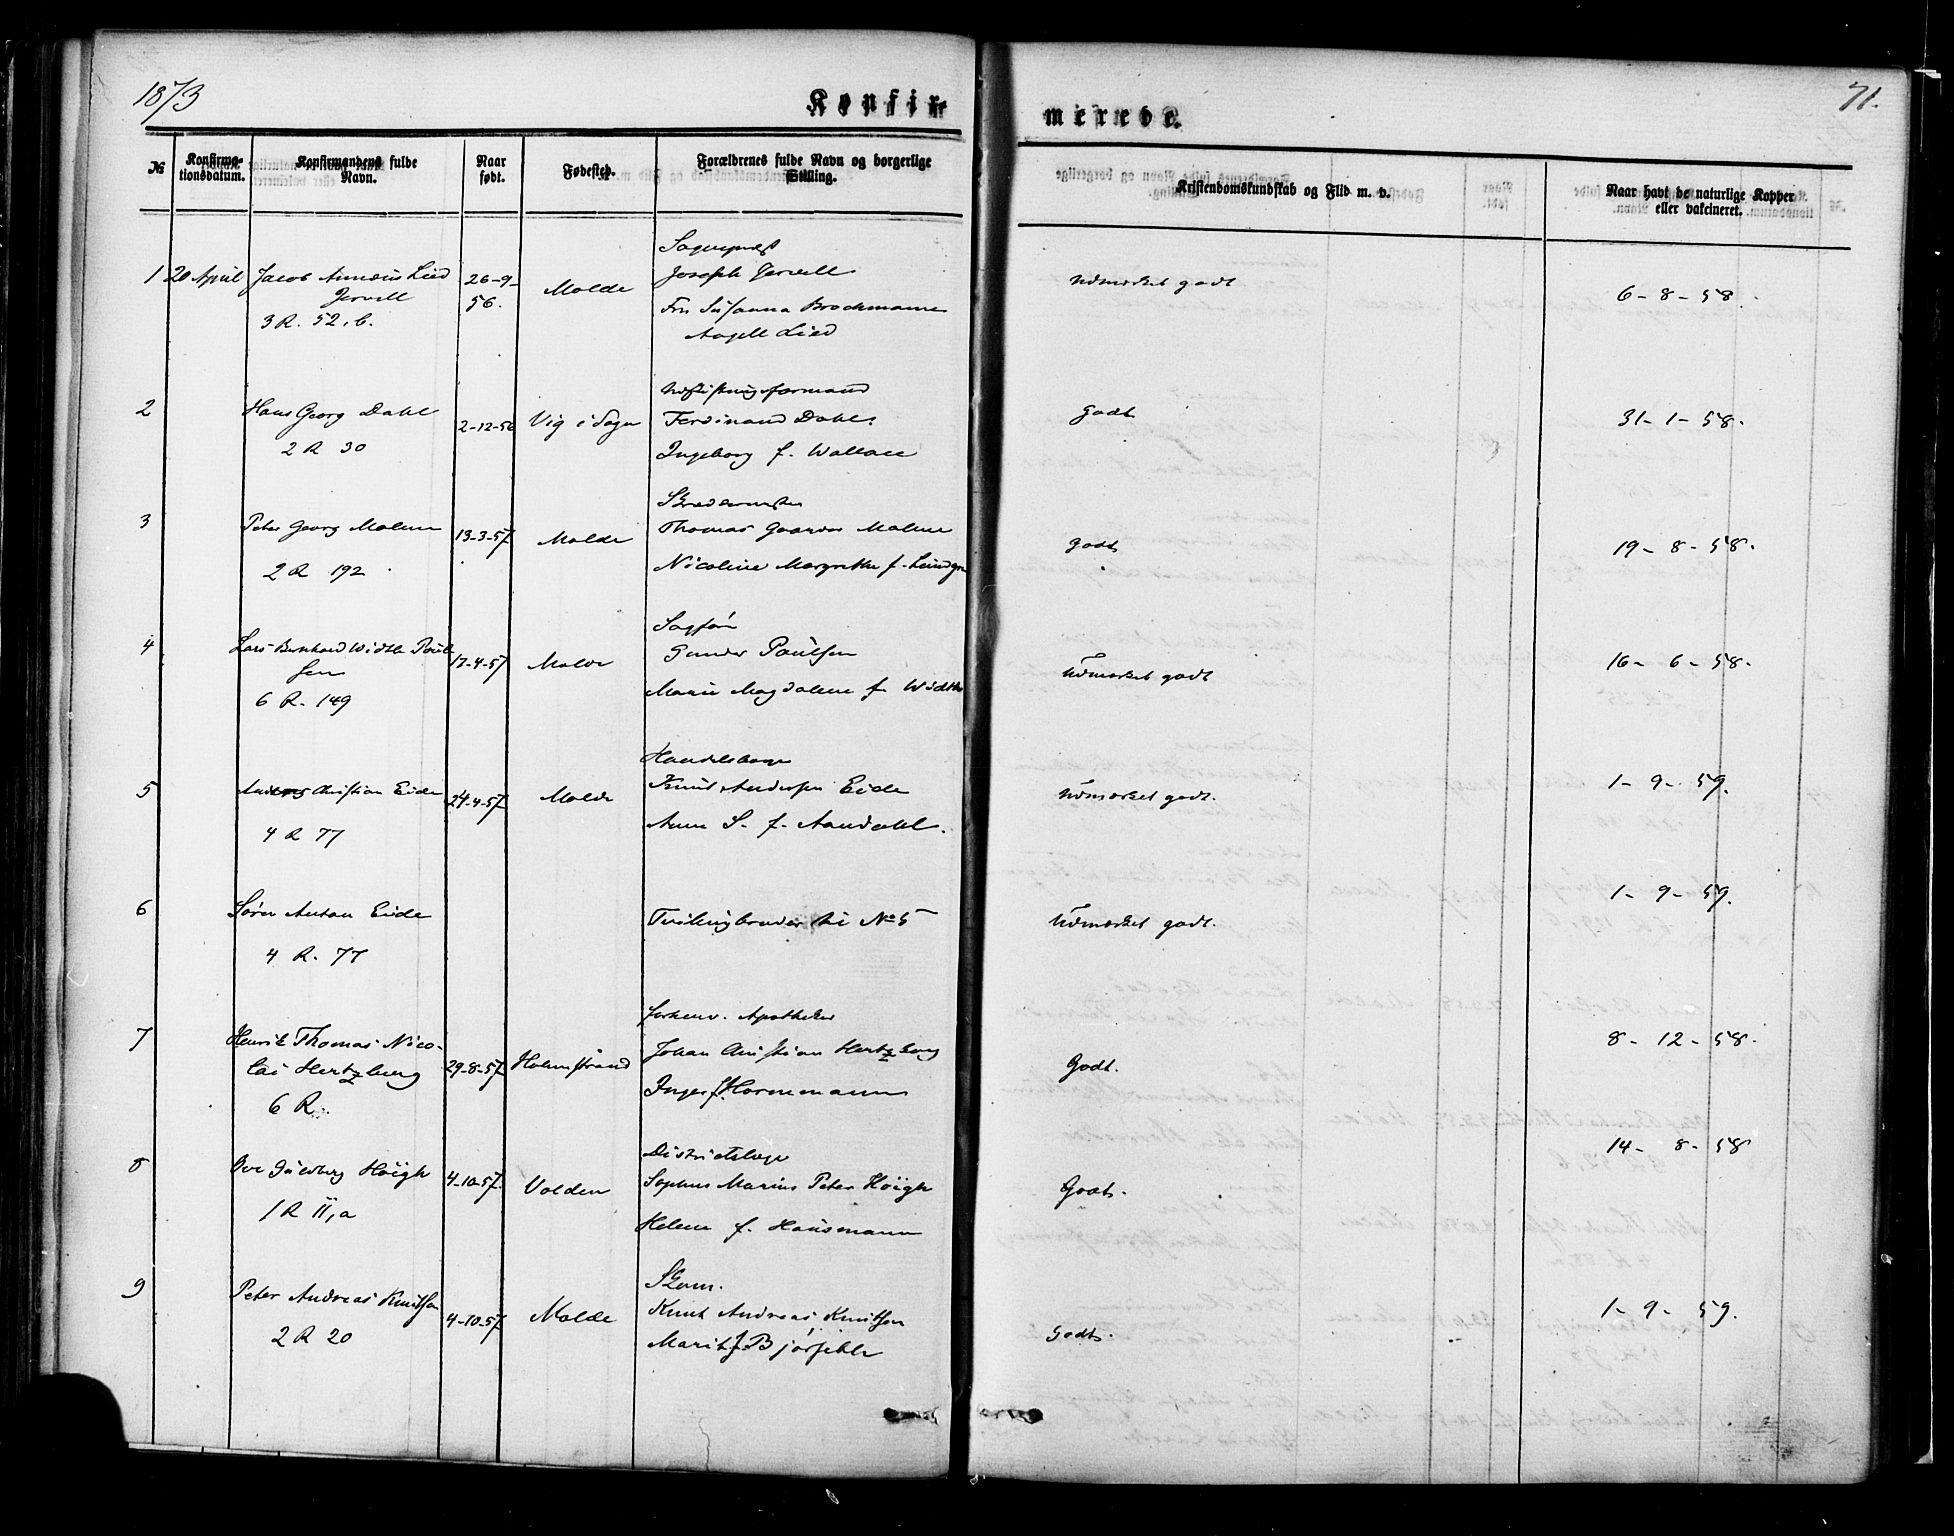 1873
Konfir-
merede.
71.
№
Konfirma-
tionsdatum.
Konfirmandens fulde
Navn.
Naar
født.
Fødested.
Forældrenes fulde Navn og borgerlige
Stilling.
Kristendomskundskab og Flid m. v.
Naar havt de naturlige Kopper
eller vakcineret.
Sogneprest
1 20 April Jacob Annæus Lied 26-9- Molde Joseph Jervell Udmærket godt 6-8-58.
Jervell 56. Fru Susanna Brochmann
3 R. 52, b. Angell Lied
Udskiftningsformand
2 Hans Georg Dahl 2-12-56 Vig i Sogn Ferdinand Dahl. Godt 31-1-58.
2 R 30 Ingeborg f. Wallace
Skrædermester
3 Peter Georg Malmn 13-3-57 Molde Thomas Malme Godt 19-8-58.
2 R 192 Nicoline Margrethe f. Lindgr
Sagfør
4 Lars Bernhard Width Poul 17-4-57 Molde Gunder Poulsen Udmærket godt 16-6-58.
sen Marie Magdalene f. Width
6 R. 149
Handelsborger
5 Anders Christian Eide 24-4-57 Molde Knut Andersen Eide Udmærket godt. 1-9-59.
4 R 77 Anne S. f. Aandahl.
6 Søren Anton Eide Tvillingbroder til No 5 Udmærket godt. 1-9-59.
4 R. 77
forhenv. Apotheker
7 Henrik Thomas Nico- 29-8-57 Holmstrand Johan Christian Hertzberg Godt. 8-12-58.
lai Hertzberg Inger f. Hornemann
6 R.
Districtslæge
8 Ove Guldberg Höigh 4-10-57. Volden Sophus Marius Peter Höigh Godt. 14-8-58
1 R 11, a Helene f. Hausmann
Skom.
9 Peter Andreas Knutsen 4-10-57 Molde Knut Andreas Knutsen Godt. 1-9-59.
2 R 20 Marit f. Bjørsethe